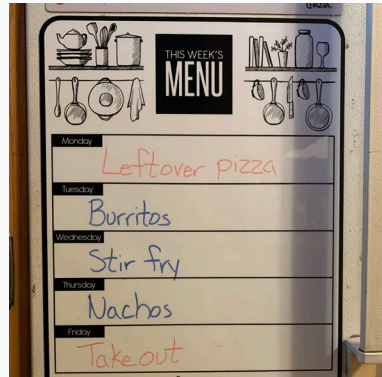 THIS WEEK'S
MENU
Monday
Leftover pizza
Tuesday
Burritos
Wednesday
Stir fry
Thursday
Nachos
Friday
Takeout